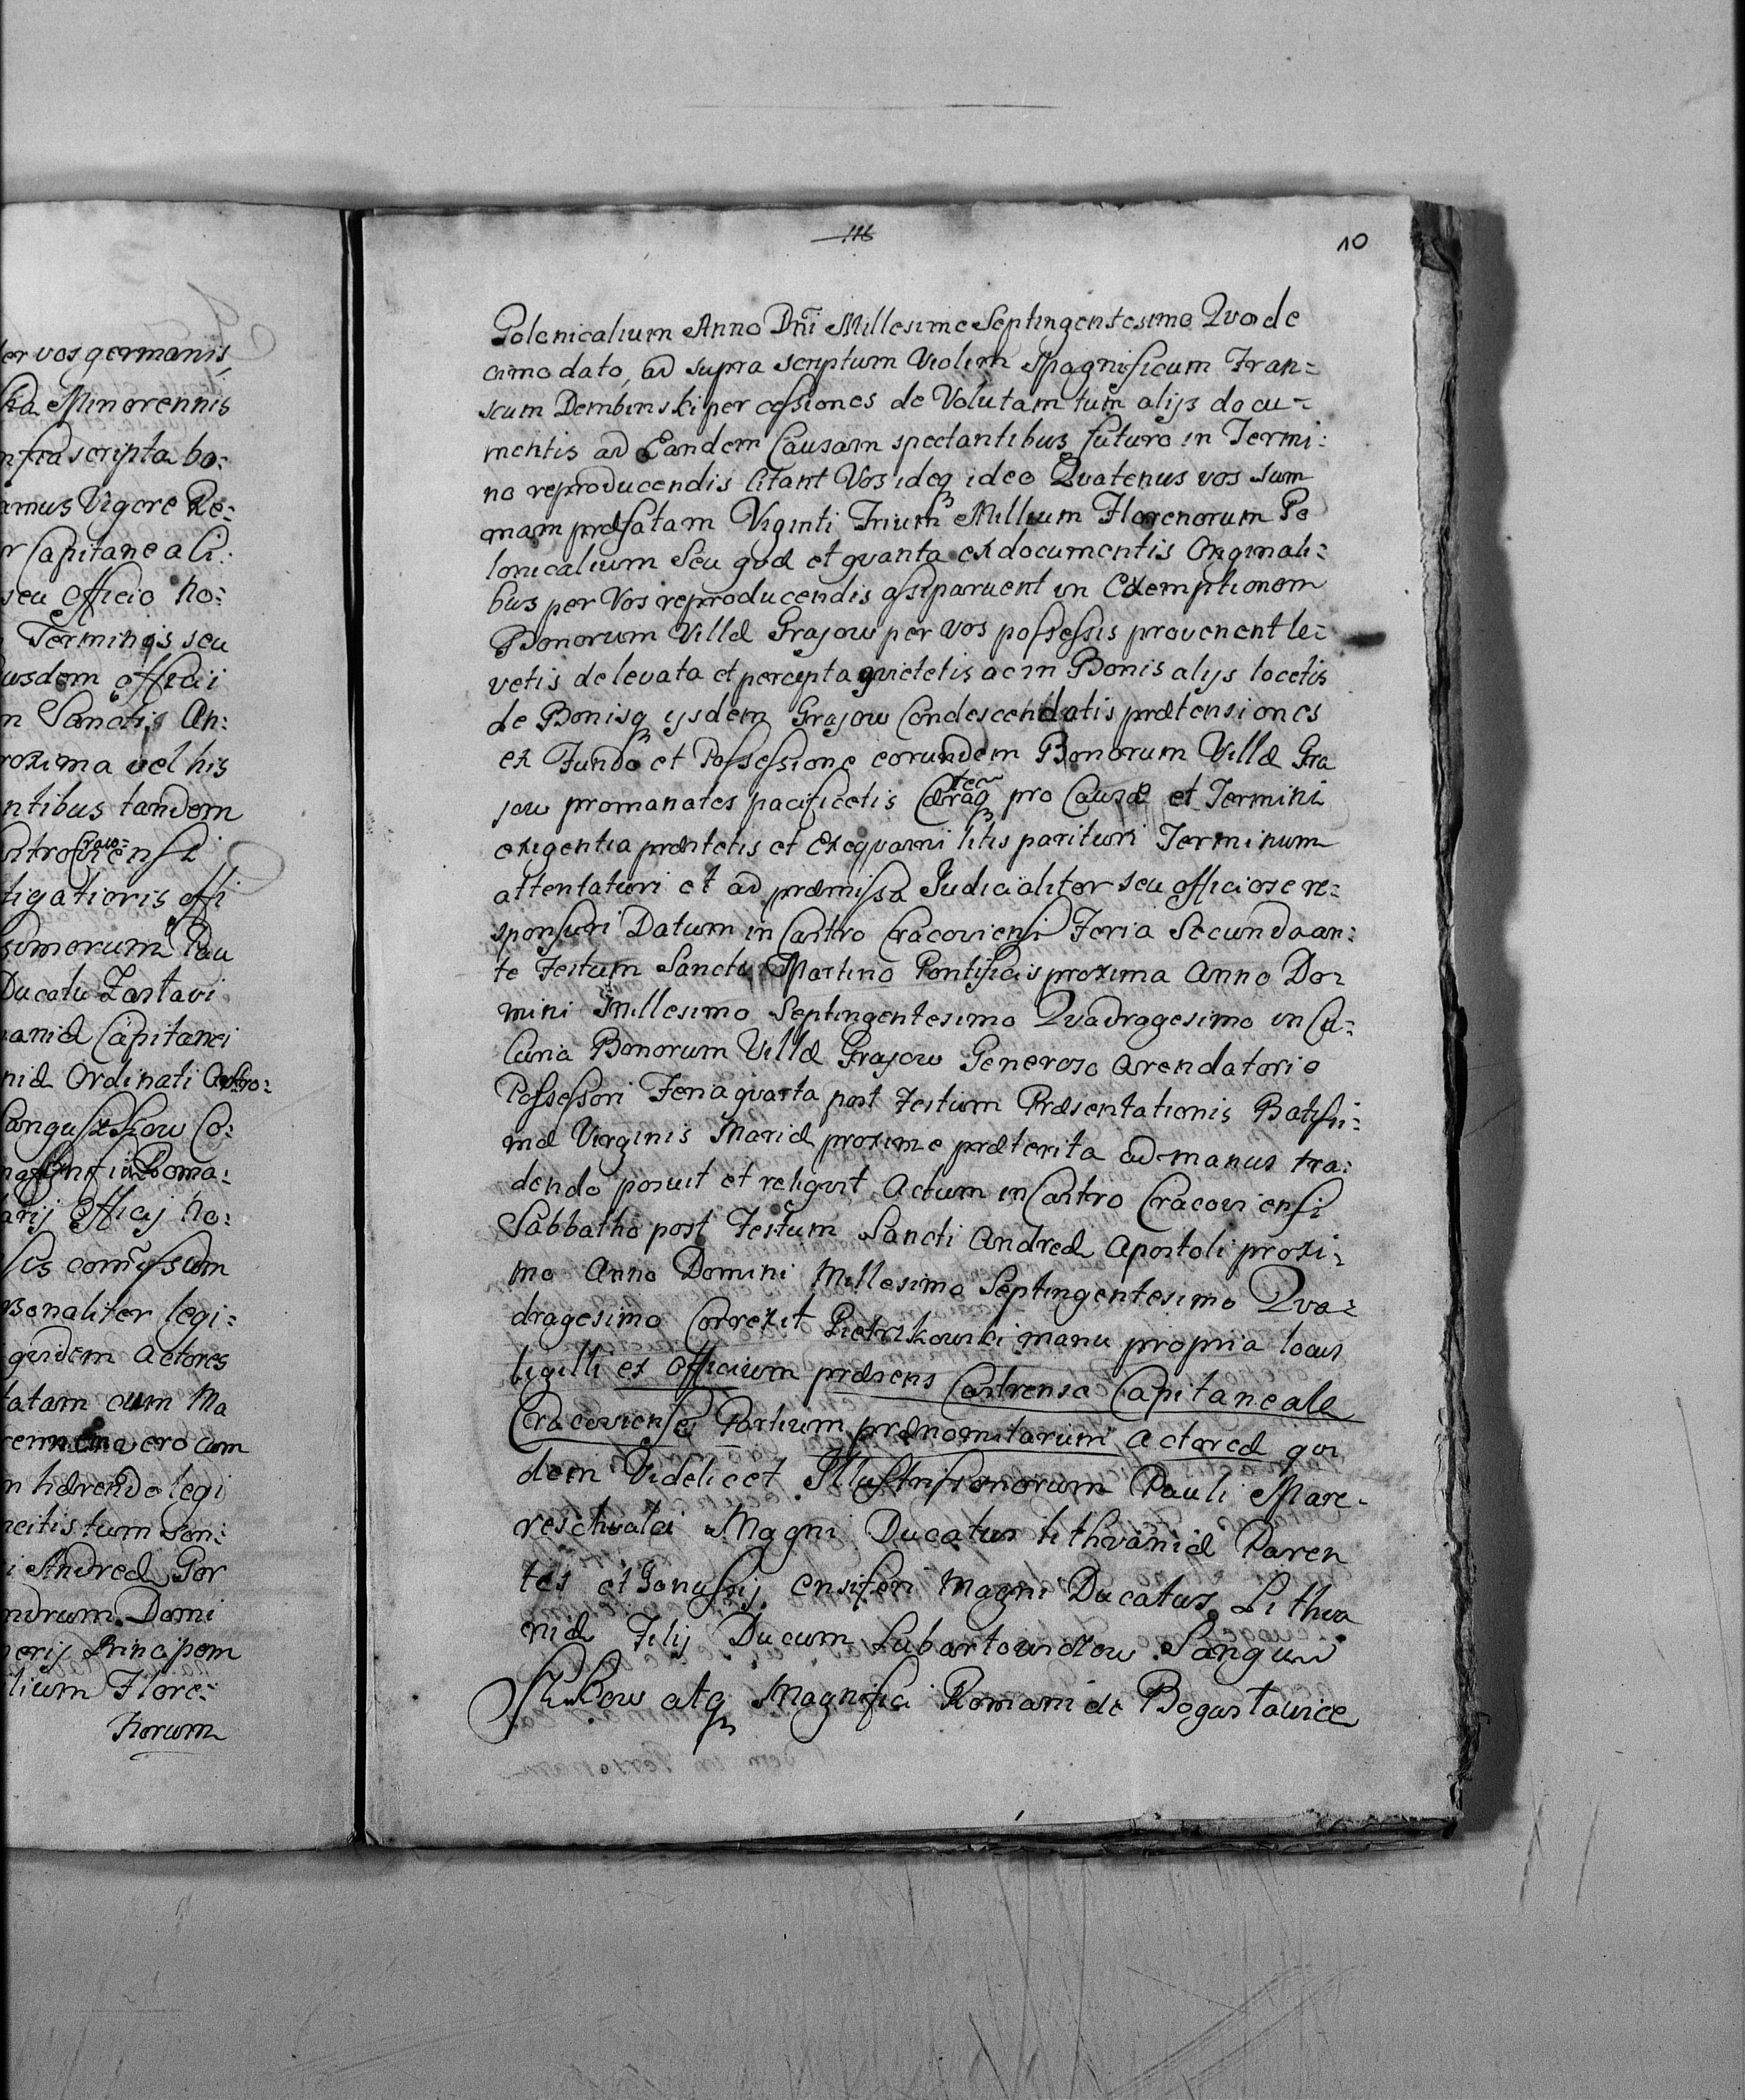 er vos germanis,
ska Minorennis
nfra scripta bo:
amus Vigore De:
r Capitaneali:
seu officio No:
Terminis seu
usdem officii
n Sanctis An:
roxima vel his
ntibus tandem
astro Craco=viensi
tigationis offi
simorum Pau
Ducatu Zastavi
aniæ Capitanei
niæ Ordinati Ostro:
Sanguszkow Co:
Roma:
arij officij No:
sis comissum
Bonaliter legi:
quidem Actores
tatam cum Ma
vero cum
n hærendo legi
ncitis tum son:
i Andreæ Gor
ndrum Domi
erij Principem
lium Flore:
norum
116
10
Polonicalium Anno Dni Millesimo Septingentesimo Quode
cimo dato, ad supra scriptum Violim Magnificum Fran=
scum Dembinski per cessiones de Volutam tum alijs docu=
mentis ad Eandem Causam spectantibus futuro in Termi:
no reproducendis Citant Vos ideq ideo Quatenus vos sum
mam præfatam Viginti Trium Millium Florenorum Po
lonicalium Seu quæ et quanta ex documentis Originali=
bus per Vos reproducendis assiparuent in Exemptionem
Bonorum Villæ Grajow per vos possessis provenent le=
vetis de levata et percepta quietetis ac in Bonis alijs locetis
de Bonisq ijsdem Grajow Condescendatis prætensiones
ex Fundo et Possessione eorundem Bonorum Villæ Gra
jow promanates pacificetis Cæteraq pro Causæ et Termini
exigentia præstetis et Exequamni litis parituri Terminum
attentaturi et ad præmissa Judicialiter seu officiose re=
sponsuri Datum in Castro Cracoviensi Feria Secunda an:
te Festum Sancti Martino Pontificis proxima Anno Do=
mini Millesimo Septingentesimo Quadragesimo in Cu=
Curia Bonorum Villæ Grajow Generoso Arendatorio
Possessori Feria quarta post Festum Præsentationis Batissi:
mæ Virginis Mariæ proxime præterita ad manus tra:
dendo posuit et reliquit Actum in Castro Cracoviensi
Sabbatho post Festum Sancti Andreæ Apostoli proxi=
mo Anno Domini Millesimo Septingentesimo Qua=
dragesimo Correxit Pietrzkowski manu propria locus
Sigilli et Officium præsens Castrense Capitaneale
Cracoviense Partium prænomitarum Actoreæ qui
dem Videlicet Illustrissimorum Pauli Mare=
reschalci Magni Ducatus Lithvaniæ Paren
tes et Janussij Ensiferi Magni Ducatus Lithva
niæ Filij Ducum Lubartowiczow Sangu
szkow atq Magnifici Romani de Bogustawice